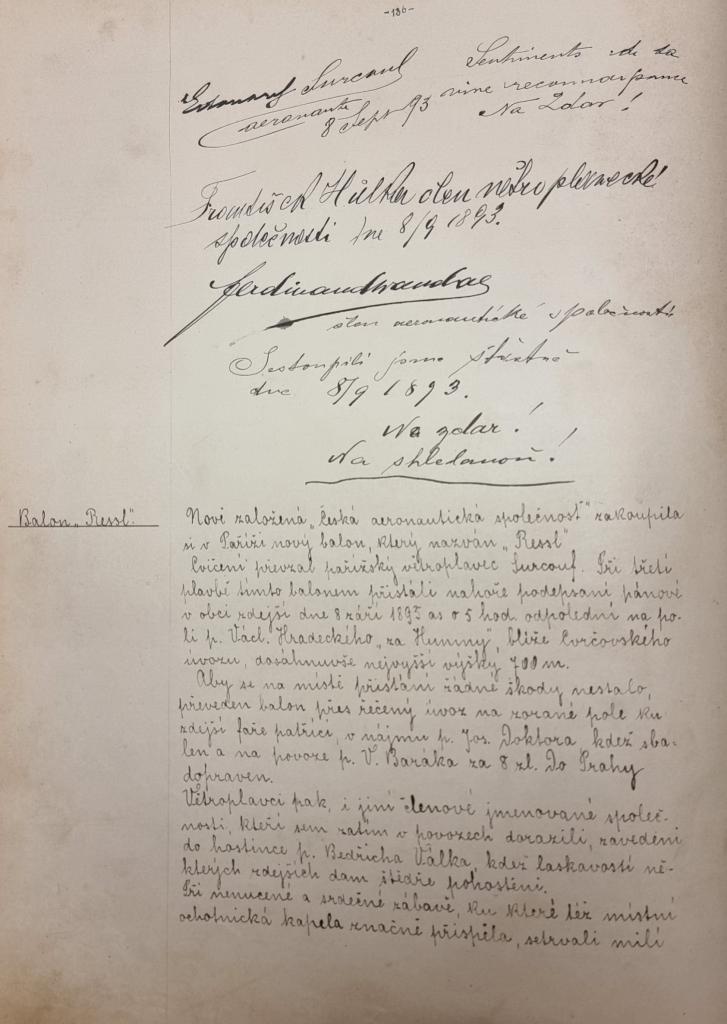 -136-
Edouard Surcouf
aéronaute
8 Sept 93
Sentiments de sa
vive reconnaissance
Na Zdar!
František Hůlka člen větroplavecké
společnosti dne 8/9 1893.
Ferdinand
člen aeronautické společnosti
Sestoupili jsme šťastně
dne 8/9 1893.
Na zdar!
Na shledanou!
Balon „Ressl".
Nově založená „Česká aeronautická společnost" zakoupila
si v Paříži nový balon, který nazván „Ressl"
Cvičení převzal pařížský větroplavec Surcouf. Při třetí
plavbě tímto balonem přistáli nahoře podepsaní pánové
v obci zdejší dne 8 září 1893 as o 5 hod. odpolední na po-
li p. Václ. Hradeckého „za Humny", blíže Cvrčovského
úvozu, dosáhnuvše nejvyšší výšky 700 m.
Aby se na místě přistání žádné škody nestalo,
převeden balon přes řečený úvoz na zorané pole ku
zdejší faře patřící, v nájmu p. Jos. Doktora, kdež sba-
len a na povoze p. V. Baráka za 8 zl. Do Prahy
dopraven.
Větroplavci pak, i jiní členové jmenované společ-
nosti, kteří sem zatím v povozech dorazili, zavedeni
do hostince p. Bedřicha Válka, kdež laskavostí ně-
kterých zdejších dam štědře pohostěni.
Při nenucené a srdečné zábavě, ku které též místní
ochotnická kapela značně přispěla, setrvali milí